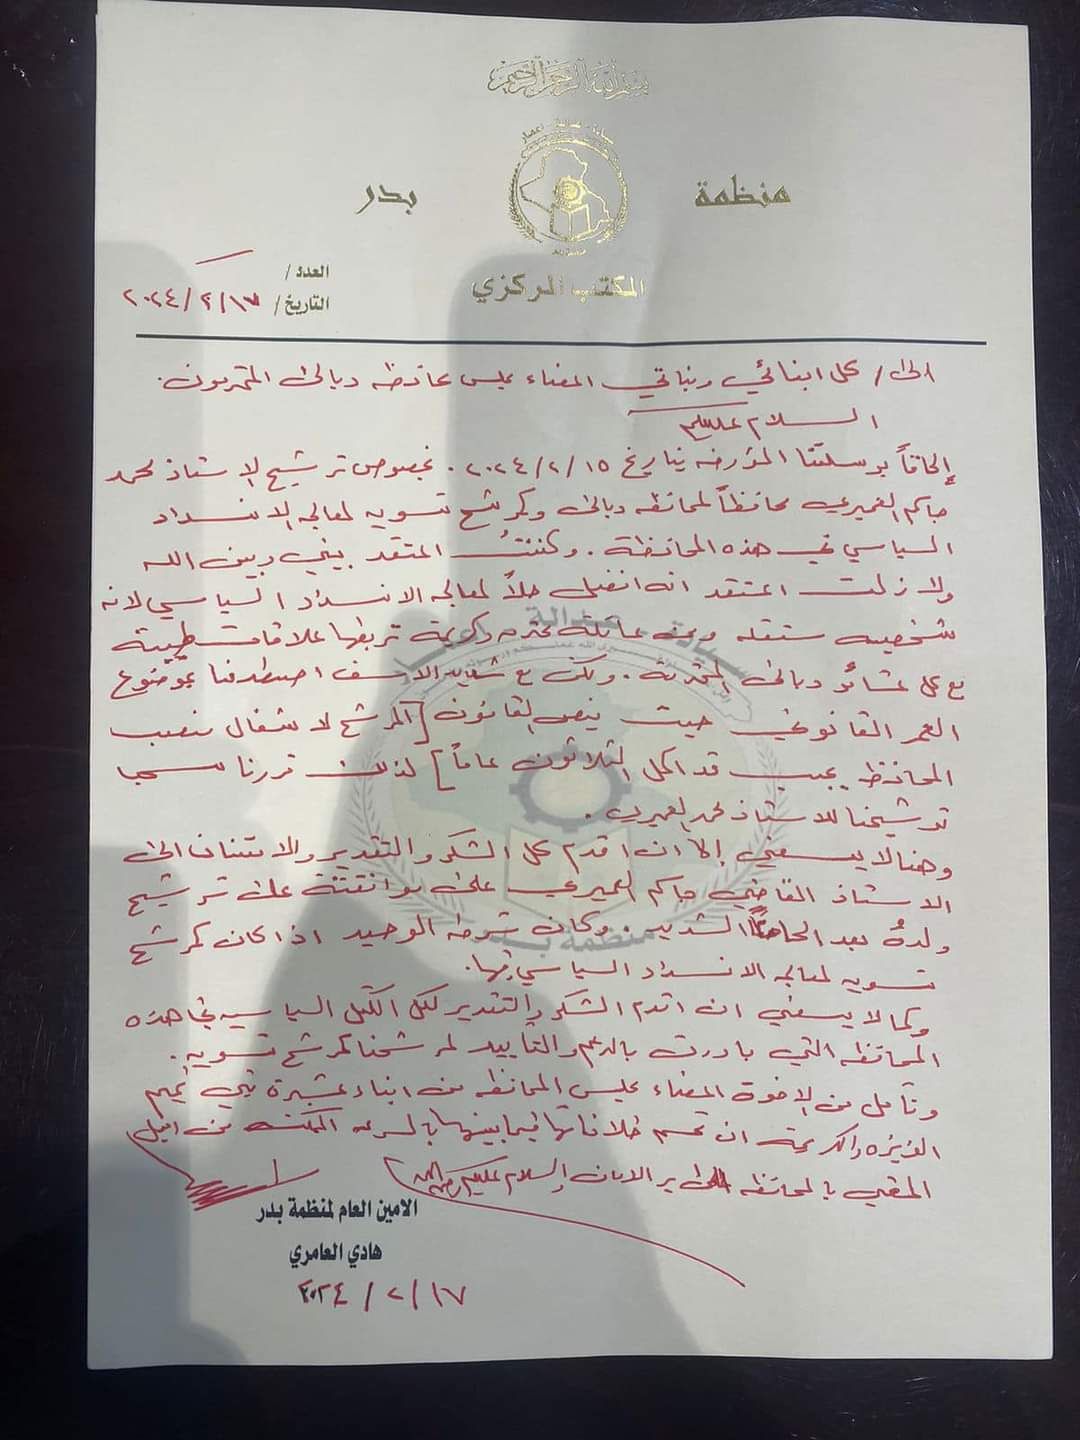 بسم الله الرحمن الرحيم
منظمة بدر
المكتب المركزي
العدد /
التاريخ / ٢٠٢٤/٢/١٧
الى / كل ابنائي وبناتي اعضاء مجلس محافظه ديالى المحترمون.
السلام عليكم
إلحاقاً برسلتنا المؤرخه بتاريخ ٢٠٢٤/٢/١٥. بخصوص ترشيح الاستاذ محمد
جاكم العميري محافظاً لمحافظه ديالى وكمرشح تسويه لمعالجه الانسداد
السياسي في هذه المحافظة. وكنتُ اعتقد بيني وبين الله
ولا زلت اعتقد انه افضل حلاً لمعالجه الانسداد السياسي لانه
شخصيه مستقله ومن عائلة محترمه وكريمة تربطها علاقات طيبة
مع كل عشائر ديالى المحترمة. ولكن مع شديد الاسف اصطدمنا بموضوع
العمر القانوني حيث ينص القانون [المرشح لاشغال منصب
المحافظ يجب قد اكمل الثلاثون عاماً] لذلك قررنا سحب
ترشيحنا للاستاذ محمد العميري.
وهنا لا يسعني إلا ان اقدم كل الشكر والتقدير والامتنان الى
الاستاذ القاضي جاكم العميري على موافقته على ترشيح
ولدهُ بعد الحاحنا الشديد. وكان شرطه الوحيد اذا كان كمرشح
تسويه لمعالجه الانسداد السياسي فيها.
وكما لا يسعني ان اقدم الشكر والتقدير لكل الكتل السياسيه تجاه هذه
المحافظه التي بادرت بالدعم والتاييد لمرشحنا كمرشح تسويه.
ونأمل من الاخوة اعضاء مجلس المحافظه من ابناء عشيرة بني تميم
العزيزه والكريمة ان تحسم خلافاتها فيما بينها بالسرعه الممكنه من اجل
المضي بالمحافظه الى بر الامان والسلام عليكم
الامين العام لمنظمة بدر
هادي العامري
٢٠٢٤ / ٢ / ١٧